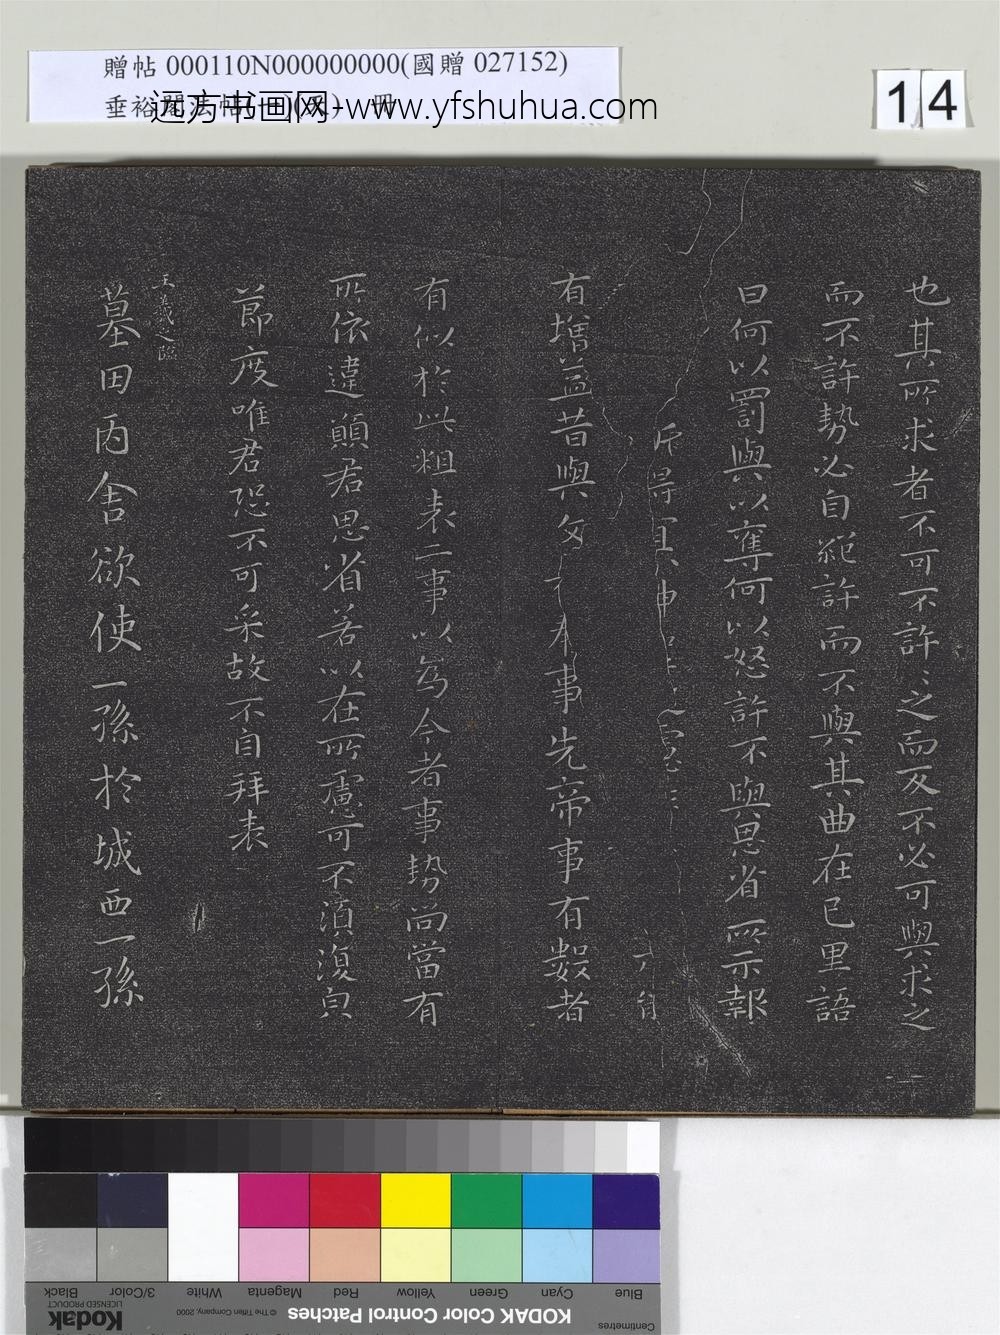 贈帖 000110N000000000(國贈 027152)
垂裕閣法帖
远方书画网-www.yfshuhua.com
14
也其所求者不可不許〻之而反不必可與求之
而不許勢必自絶許而不與其曲在己里語
曰何以罰與以奪何以怒許不與思省所示報
所得宜神
有增益昔與文 本事先帝事有數者
有似於此粗表二事以為今者事勢尚當有
所依違願君思省若以在所慮可不須復皃
節度唯君恐不可采故不自拜表
王羲之臨
墓田丙舍欲使一孫於城西一孫
Blue Cyan Green Yellow Red Magenta White 3/Color Black
Centimetres KODAK Color Control Patches © The Tiffen Company, 2000 Kodak
LICENSED PRODUCT